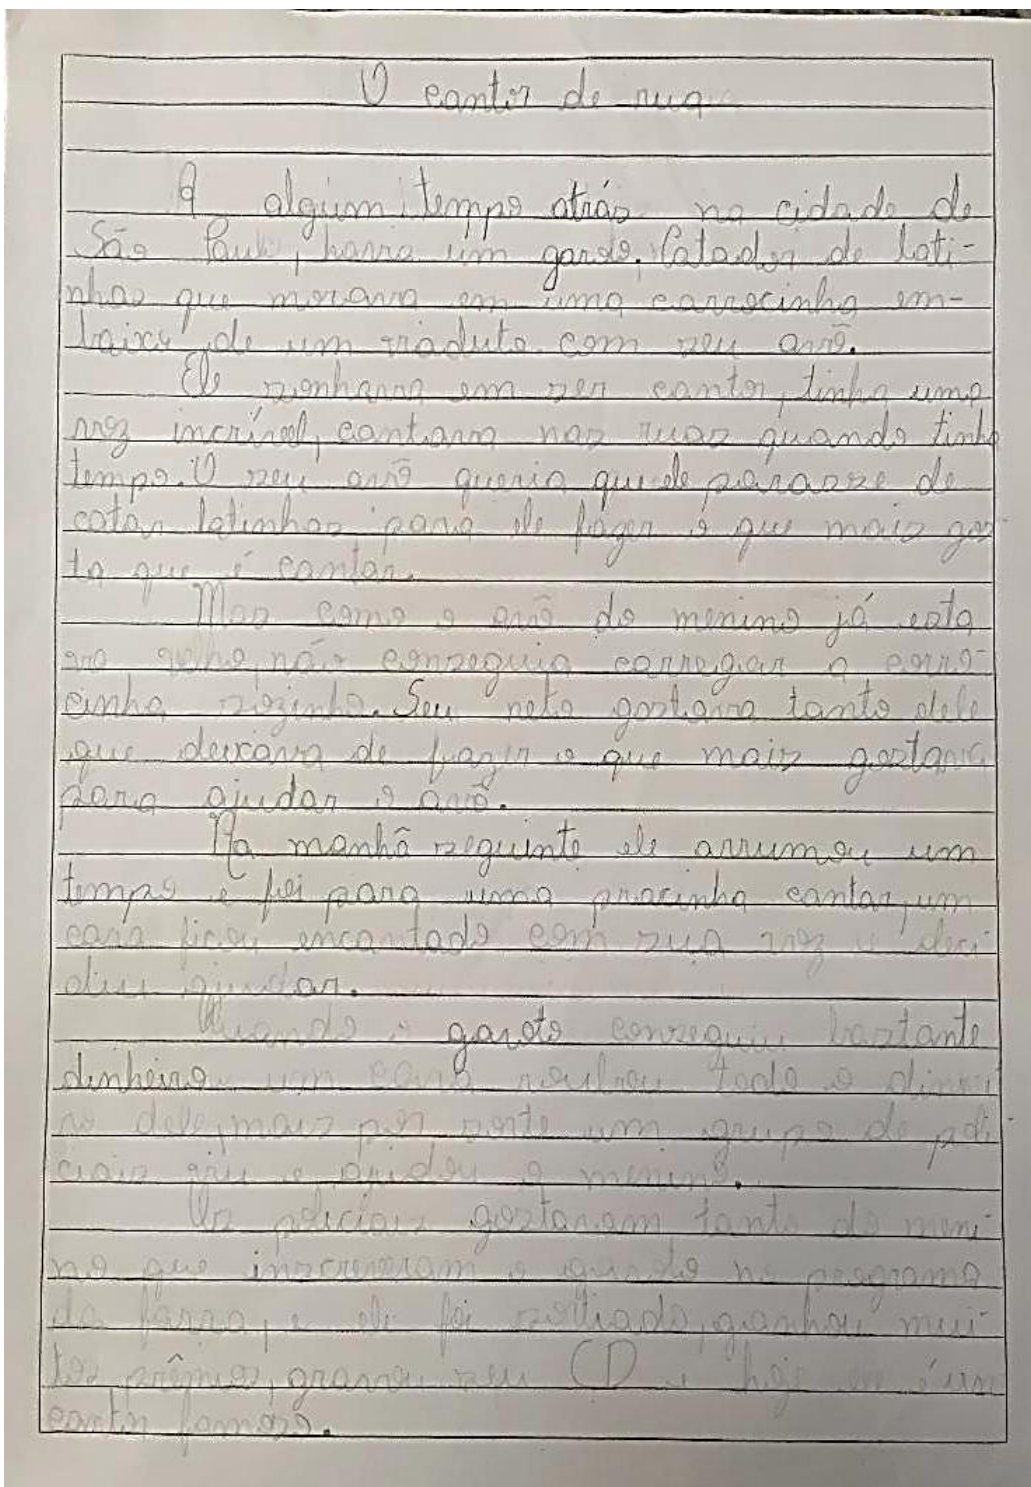 O cantor de rua
A algum tempo atrás na cidade de
São Paulo, havia um garoto. Catador de lati-
nhas que morava em uma carrocinha em-
baixo de um viaduto com seu avô.
Ele sonhava em ser cantor, tinha uma
voz incrível, cantava nas ruas quando tinha
tempo. O seu avô queria que ele parasse de
catar latinhas para ele fazer o que mais gos
ta que é cantar.
Mas como o avô do menino já esta
va velho, não conseguia carregar a carro-
cinha sozinho. Seu neto gostava tanto dele
que deixava de fazer o que mais gostava
para ajudar o avô.
Na manhã seguinte ele arrumou um
tempo e foi para uma pracinha cantar, um
cara ficou encantado com sua voz e deci-
diu ajudar.
Quando o garoto conseguiu bastante
dinheiro um cara roubou todo o dinhei
ro dele, mais por sorte um grupo de poli-
ciais viu e ajudou o menino.
Os policiais gostaram tanto do meni-
no que inscreveram o garoto no programa
da , e ele foi sortiado, ganhou mui-
tos prêmios, gravou seu CD e hoje é um
cantor famoso.